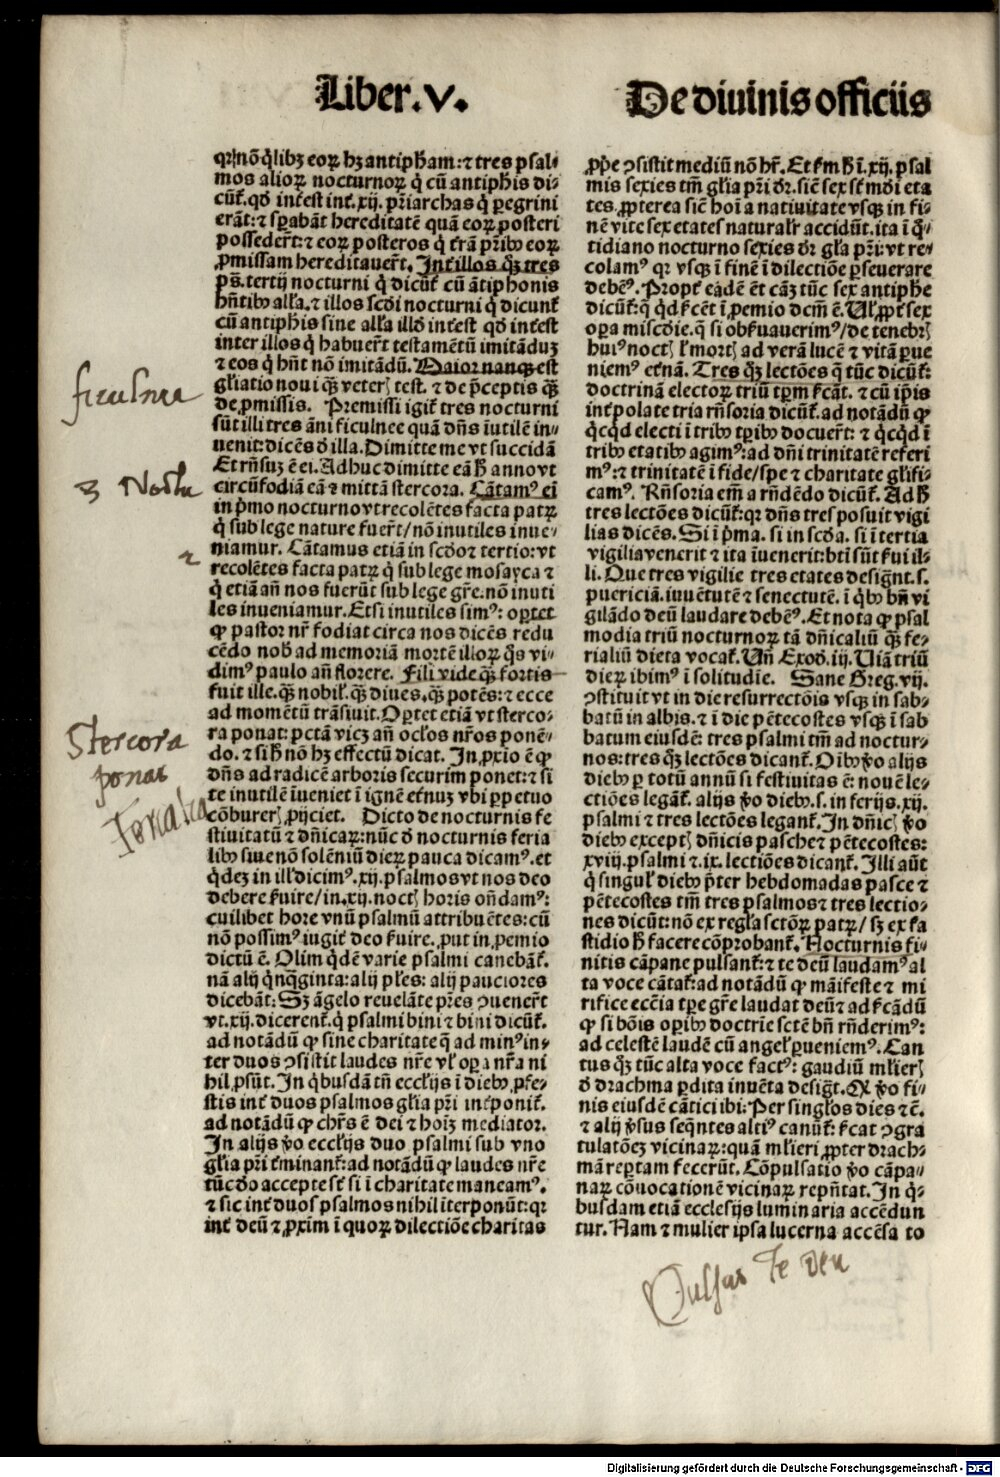 Liber.V.
De diuinis officiis
qr nō q̄libꝫ eoꝝ hꝫ antiph̄am:⁊ tres psal⸗
mos alioꝝ nocturnoꝝ q̇ cū antiph̄is di⸗
cūt̄. qđ int̄est int̄. xij. pr̄iarchas q̇ ꝑegrini
erāt:⁊ sꝑabāt hereditatē quā eoꝝ posteri
posseder̄t:⁊ eoꝝ posteros q̇ t̄rā pr̄ibꝰ eoꝝ
ꝓmissam hereditauer̄t. Int̄ illos q̄ꝫ tres
ps̄. tertij nocturni q̇ dicūt̄ cū ātiphonis
hn̄tibꝰ all̄a.⁊ illos scđi nocturni q̇ dicunt̄
cū antiph̄is sine all̄a illđ int̄est qđ int̄est
inter illos q̇ habuer̄t testamētū imitāduꝫ
⁊ eos q̇ hn̄t nō imitādū. Maior nanqꝫ est
gl̄iatio noui q̄ꝫ veterꝭ test. ⁊ de p̄ceptis q̄ꝫ
de ꝓmissis. Premissi igit̄ tres nocturni
sūt illi tres āni ficulnee quā dn̄s īutilē in⸗
uenit:dicēs đ illa. Dimitte me vt succidā
Et rn̄suꝫ ē ei. Adhuc dimitte eā h̄ anno vt
circūfodiā eā ⁊ mittā stercora. Cātamꝰ ei
in p̄mo nocturno vt recolētes facta patꝝ
q̇ sub lege nature fuer̄t/nō inutiles inue⸗
niamur. Cātamus etiā in scđo ⁊ tertio:vt
recolētes facta patꝝ q̇ sub lege mosayca ⁊
q̇ etiā an̄ nos fuerūt sub lege gr̄e. nō inuti
les inueniamur. Etsi inutiles simꝰ: oꝑtet
ꝙ pastor nr̄ fodiat circa nos dicēs redu
cēdo nob̄ ad memoriā mortē illoꝝ q̊s vi⸗
dimꝰ paulo an̄ florere. Fili vide q̄ꝫ fortis
fuit ille. q̄ꝫ nobil̄. q̄ꝫ diues. q̄ꝫ potēs:⁊ ecce
ad momētū trāsiuit. Oꝑtet etiā vt sterco⸗
ra ponat: pctā vicꝫ an̄ ocl̄os nr̄os ponē⸗
do. ⁊ si h̄ nō hꝫ effectū dicat. In ꝓxio ē ꝙ
dn̄s ad radicē arboris securim ponet:⁊ si
te inutilē īueniet ī ignē et̄nuꝫ vbi ꝑpetuo
cōburerꝭ ꝓijciet. Dicto de nocturnis fe
stiuitatū ⁊ dn̄icaꝝ:nūc đ nocturnis feria
libꝰ siue nō solēniū dieꝝ pauca dicamꝰ. et
q̇dez in ill̄ dicimꝰ. xij. psalmos vt nos deo
debere ẜuire/in. xij. noctꝭ horis on̄damꝰ:
cuilibet hore vnū psalmū attribuētes:cū
nō possimꝰ iugit̄ deo ẜuire. put in ꝓemio
dictū ē. Olim q̇dē varie psalmi canebāt̄.
nā alij q̇nq̄ginta:alij pl̄es: alij pauciores
dicebāt: Sꝫ āgelo reuelāte pr̄es ꝯuener̄t
vt. xij. dicerent̄. q̇ psalmi bini ⁊ bini dicūt̄.
ad notādū ꝙ sine charitate q̄ ad minꝰ in⸗
ter duos ꝯsistit laudes nr̄e vl̄ oꝑa nr̄a ni
hil ꝓsūt. In q̇busdā tn̄ eccl̄ijs ī diebꝰ ꝓfe⸗
stis int̄ duos psalmos gl̄ia pr̄i int̄ponit̄.
ad notādū ꝙ chr̄s ē dei ⁊ hoīꝫ mediator.
In alijs ꝟo eccl̄ijs duo psalmi sub vno
gl̄ia pr̄i t̄minant̄:ad notādū ꝙ laudes nr̄e
tūc đo accepte st̄ si ī charitate maneamꝰ.
⁊ sic int̄ duos psalmos nihil īterponūt: qr
int̄ deū ⁊ ꝓxim̄ ī quoꝝ dilectiōe charitas
ꝓp̄e ꝯsistit mediū nō hr̄. Et ẜm h̄ ī. xij. psal
mis sexies tm̄ gl̄ia pr̄i đr. sic̄ sex st̄ mđi eta
tes. ꝓpterea sic̄ hoī a natiuitate vsqꝫ in fi⸗
nē vite sex etates naturalr̄ accidūt. ita ī q̊⸗
tidiano nocturno sexies đr gl̄a pr̄i:vt re⸗
colamꝰ qr vsqꝫ ī finē ī dilectiōe ꝑseuerare
debēꝰ. Propt̄ eādē ēt cāꝫ tūc sex antiphe
dicūt̄:q̄ q̇d ẜc̄ēt ī ꝓemio dcm̄ ē. Ul̄ ꝓpt̄ sex
oꝑa misc̄đie. q̄ si obẜuauerimꝰ/de tenebrꝭ
huiꝰ noctꝭ l̄ mortꝭ ad verā lucē ⁊ vitā ꝑue
niemꝰ et̄nā. Tres q̄ꝫ lectōes q̄ tūc dicūt̄:
doctrinā electoꝝ triū tꝑm ẜcāt. ⁊ cū ip̄is
int̄polate tria rn̄soria dicūt̄. ad notādū ꝙ
q̇cq̇d electi ī tribꝰ tꝑibꝰ docuer̄t: ⁊ q̇cq̇d ī
tribꝰ etatibꝰ agimꝰ:ad dn̄i trinitatē referi
mꝰ:⁊ trinitatē ī fide/spe ⁊ charitate gl̄ifi⸗
camꝰ. Rn̄soria em̄ a rn̄dēdo dicūt̄. Ad h̄
tres lectōes dicūt̄:qr dn̄s tres posuit vigi
lias dicēs. Si ī p̄ma. si in scđa. si ī tertia
vigilia venerit ⁊ ita īuenerit:bt̄i sūt ẜui il⸗
li. Que tres vigilie tres etates design̄t. s.
puericiā. iuuētutē ⁊ senectutē. ī q̇bꝰ bn̄ vi
gilādo deū laudare debēꝰ. Et nota ꝙ psal
modia triū nocturnoꝝ tā dn̄icaliū q̄ꝫ fe⸗
rialiū dieta vocat̄. Un̄ Exođ. iij. Uiā triū
dieꝝ ibimꝰ ī solitudīe. Sane Greg. vij.
ꝯstituit vt in die resurrectōis vsqꝫ in sab⸗
batū in albis. ⁊ ī die pētecostes vsqꝫ ī sab
batum eiusdē: tres psalmi tm̄ ad noctur⸗
nos:tres q̄ꝫ lectōes dicant̄. Oībꝰ ꝟo alijs
diebꝰ ꝑ totū annū si festiuitas ē: nouē le⸗
ctiōes legāt̄. alijs ꝟo diebꝰ. s. in ferijs. xij.
psalmi ⁊ tres lectōes legant̄. In dn̄icꝭ ꝟo
diebꝰ exceptꝭ dn̄icis pasche ⁊ pētecostes:
xviij. psalmi ⁊. ix. lectiōes dicant̄. Illi aūt
q̇ singul̄ diebꝰ p̄ter hebdomadas pasce ⁊
pētecostes tm̄ tres psalmos ⁊ tres lectio⸗
nes dicūt:nō ex regl̄a sctōꝝ patꝝ/ sꝫ ex fa
stidio h̄ facere cōprobant̄. Nocturnis fi⸗
nitis cāpane pulsant̄:⁊ te deū laudamꝰ al
ta voce cātat̄:ad notādū ꝙ māifeste ⁊ mi
rifice ecc̄ia tꝑe gr̄e laudat deū ⁊ ad ẜcādū
ꝙ si bōis oꝑibꝰ doctrīe sctē bn̄ rn̄derimꝰ:
ad celestē laudē cū angel̄ ꝑueniemꝰ. Can
tus q̄ꝫ tūc alta voce factꝰ: gaudiū ml̄ierꝭ
đ drachma ꝑdita inuēta design̄t. Qđ ꝟo fi⸗
nis eiusdē cātici ibi:Per singl̄os dies ⁊c̄.
⁊ alij ꝟsus seqn̄tes altiꝰ canūt̄: ẜcat ꝯgra
tulatōeꝫ vicinaꝝ:quā ml̄ieri ꝓpter drach⸗
mā reꝑtam fecerūt. Cōpulsatio ꝟo cāpa⸗
naꝝ cōuocationē vicinaꝝ repn̄tat. In q̇⸗
busdam etiā ecclesijs luminaria accēdun
tur. Nam ⁊ mulier ipsa lucerna accēsa to
ficulnea
3 Noctu
2
Stercora
ponat
Ferialia
Pulsat Te deu
Digitalisierung gefördert durch die Deutsche Forschungsgemeinschaft - DFG